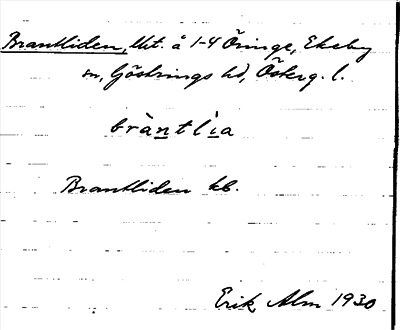 Brantliden, Utt. å 1-4 Öringe, Ekeby
sn, Göstrings hd, Österg. l.
bràntlia
Brantliden kb.
Erik Alm 1930